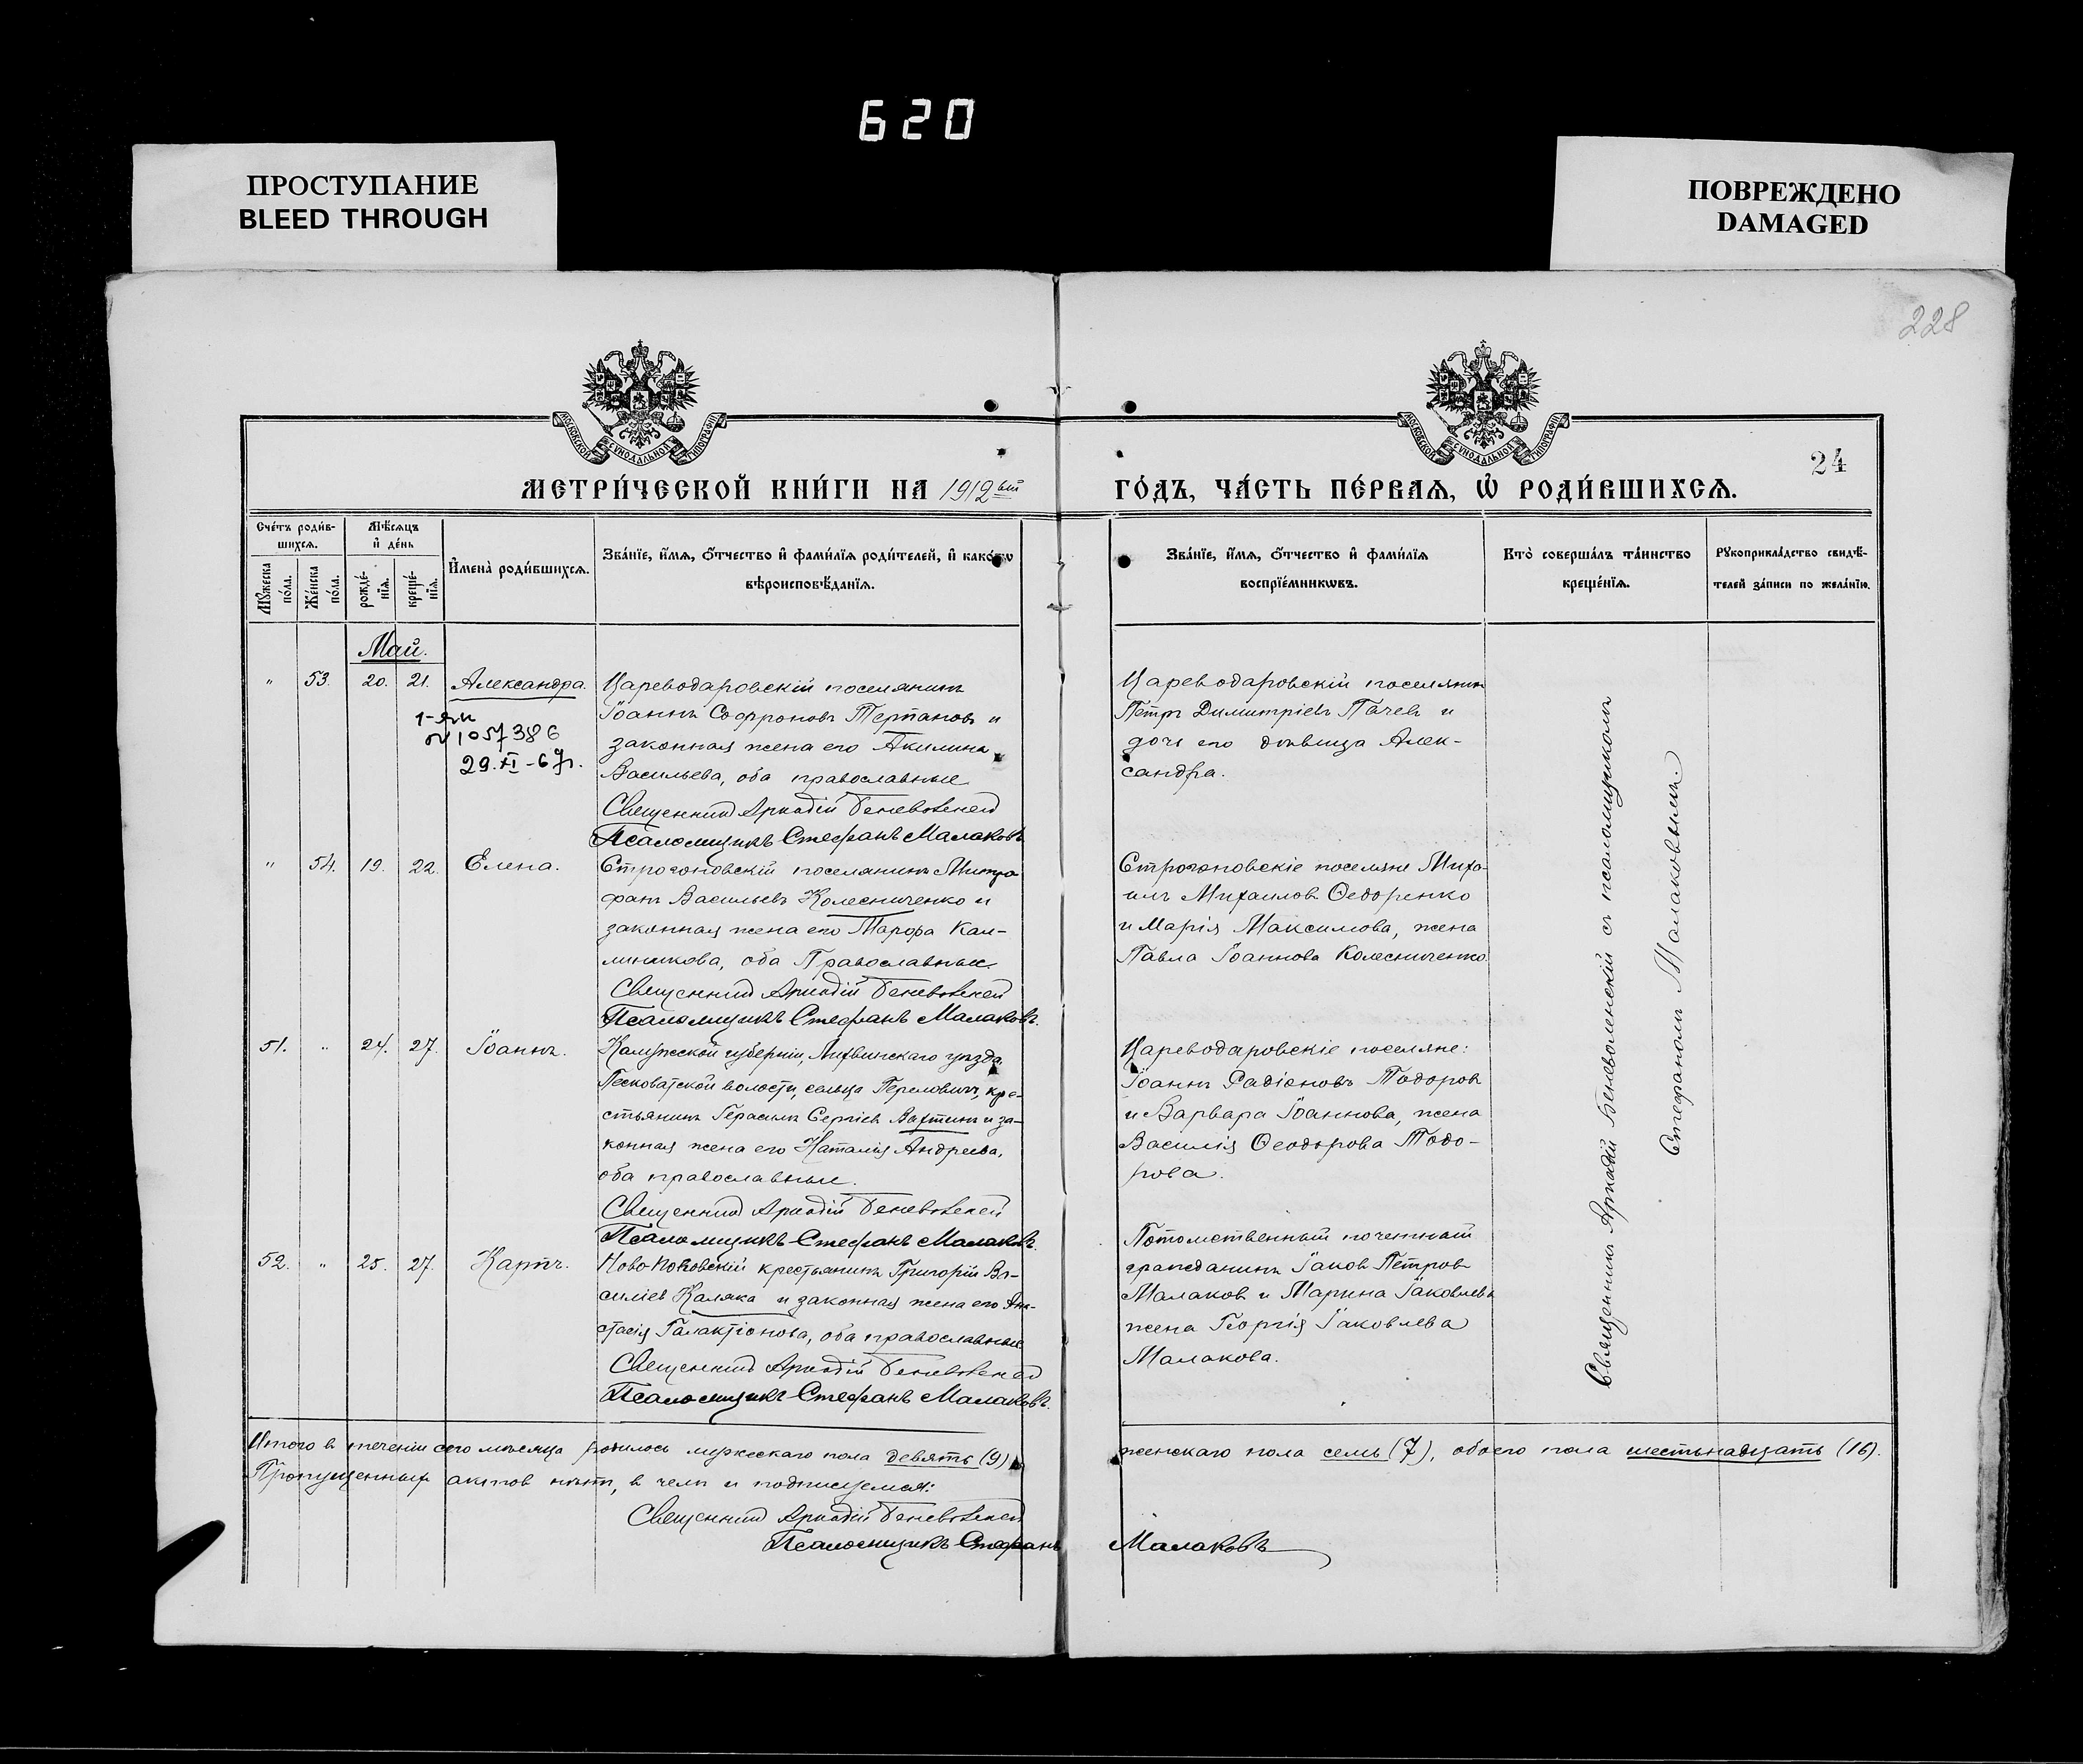 620
ПРОСТУПАНИЕ
BLEED THROUGH
ПОВРЕЖДЕНО
DAMAGED
228
МОСКОВСКОЙ СѴНОДАЛЬНОЙ ТИПОГРАФІИ
МОСКОВСКОЙ СѴНОДАЛЬНОЙ ТИПОГРАФІИ
24
МЕТРИ́ЧЕСКОЙ КНИ́ГИ НА 1912ый
ГО́ДЪ, ЧА́СТЬ ПЕ́РВАѦ, Ѡ҆ РОДИ́ВШИХСѦ.
Сче́тъ роди́в-
шихсѧ.
Мѣ́сѧцъ
и҆ де́нь
Мꙋ́жеска по́ла.
Же́нска по́ла.
рожде́-нїѧ.
креще́-нїѧ.
И҆мена̀ роди́вшихсѧ.
Зва́нїе, и҆́мѧ, ѻ҆́тчество и҆ фами́лїѧ роди́телей, и҆ како́гѡ
вѣроисповѣ́данїѧ.
Зва́нїе, и҆́мѧ, ѻ҆́тчество и҆ фами́лїѧ
воспрїе́мникѡвъ.
Кто̀ соверша́лъ та́инство
креще́нїѧ.
Рꙋкоприкла́дство свидѣ́-
телей за́писи по жела́нїю.
Май.
" 53. 20. 21. Александра.
1-ям
N 1057386
29.XI-67г.
Цареводаровскій поселянинъ
Іоаннъ Софроновъ Терпановъ и
законная жена его Акилина
Васильева, оба православные
Священникъ Аркадій Беневоленскій
Псаломщикъ Стефанъ Малаковъ
Цареводаровскій поселянин
Петръ Димитріевъ Пачевъ и
дочь его дѣвица Алек-
сандра.
" 54. 19. 22. Елена.
Строгоновскій поселянинъ Митро
фанъ Васильевъ Колесниченко и
законная жена его Марфа Кал-
линикова, оба Православные.
Священникъ Аркадій Беневоленскій
Псаломщикъ Стефанъ Малаковъ.
Строгоновскіе поселяне Миха-
илъ Михаиловъ Ѳедоренко
и Марія Максимова, жена
Павла Іоаннова Колесниченко.
51. " 24. 27. Іоаннъ.
Калужской губерніи, Лихвинскаго уѣзда
Песковатской волости, сельца Переловичъ, кре-
стьянинъ Герасимъ Сергіевъ Вахтинъ и за-
конная жена его Наталія Андреева,
оба православные.
Священникъ Аркадій Беневоленскій
Псаломщикъ Стефанъ Малаковъ.
Цареводаровскіе поселяне:
Іоаннъ Радіоновъ Тодоровъ
и Варвара Іоаннова, жена
Василія Ѳеодорова Тодо-
рова.
52. " 25. 27. Карпъ.
Ново-Поповскій крестьянинъ Григорій Ва-
силіев Каляка и законная жена его Ана-
стасія Галактіонова, оба православные
Священникъ Аркадій Беневоленскій
Псаломщикъ Стефанъ Малаковъ.
Потомственный почетный
гражданинъ Іаковъ Петровъ
Малаковъ и Марина Іаковлева
жена Георгія Іаковлева
Малакова.
Священникъ Аркадій Беневоленскій съ псаломщикомъ
Стефаномъ Малаковымъ.
Итого въ теченіи сего мѣсяца родилось мужескаго пола девять (9),
женскаго пола семь (7), обоего пола шестьнадцать (16).
Пропущенныхъ актовъ нѣтъ, въ чемъ и подписуемся:
Священникъ Аркадій Беневоленскій
Псаломщикъ Стефанъ Малаковъ